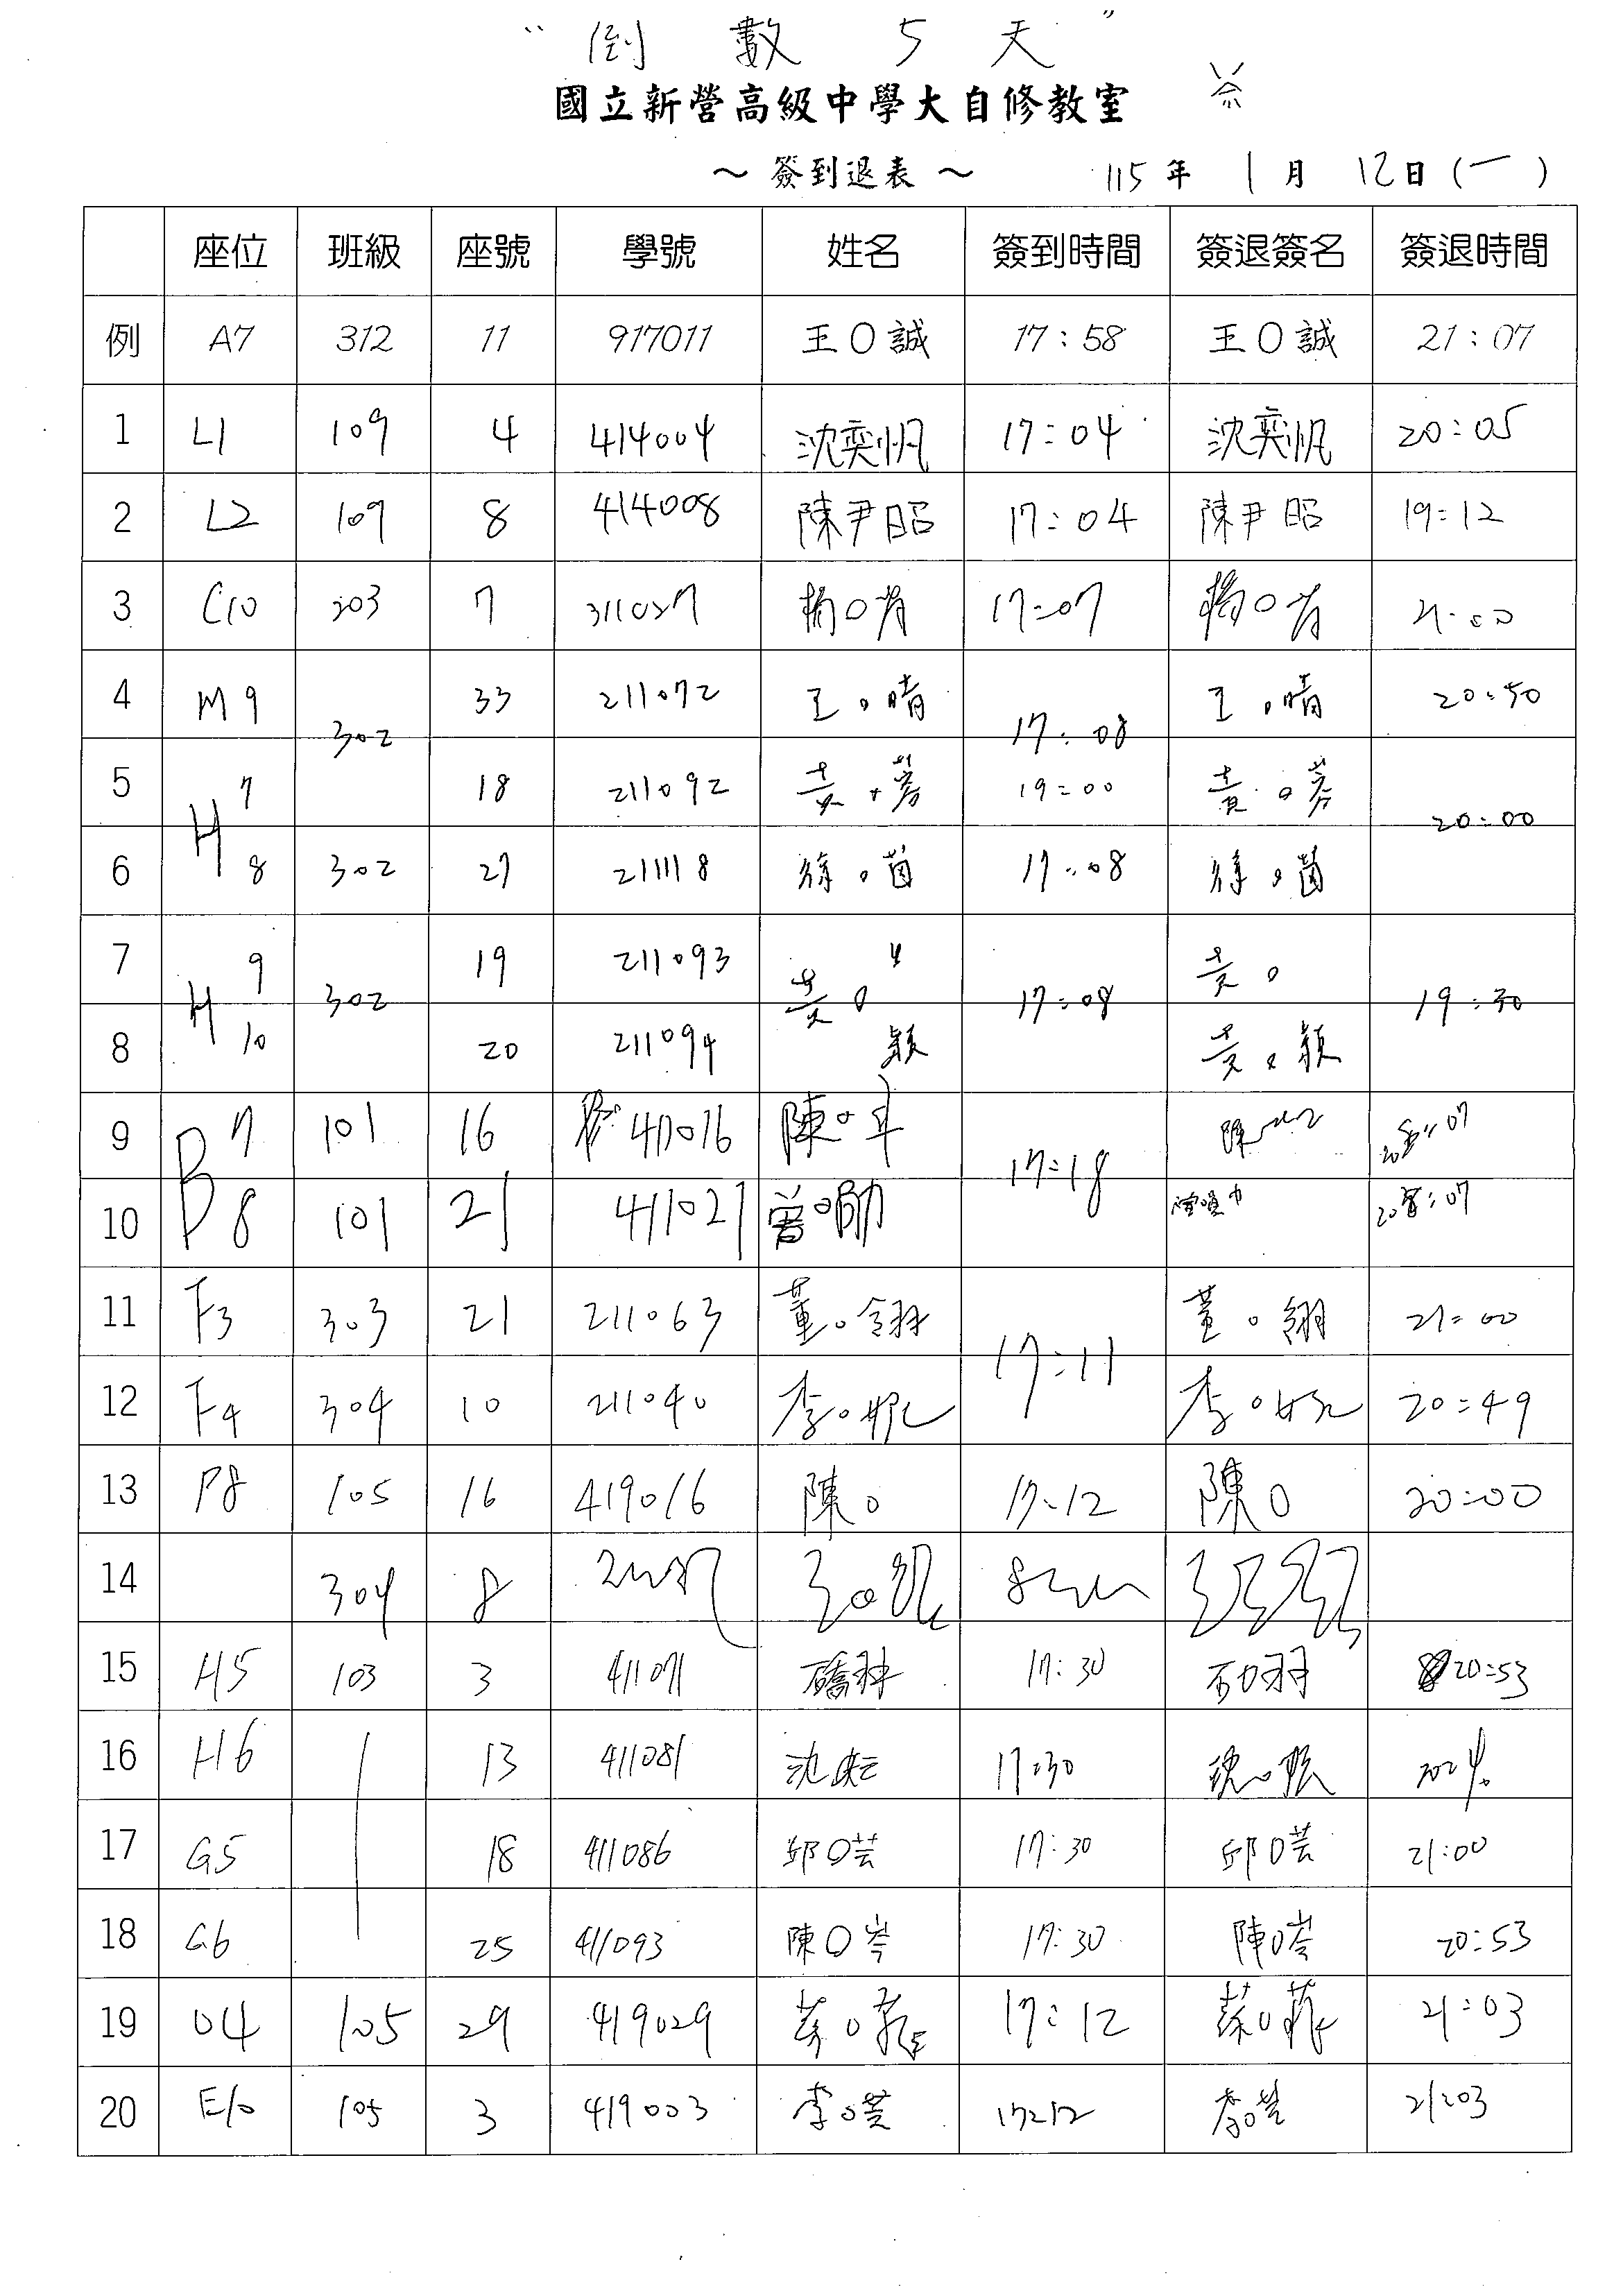 "倒數5天"
國立新營高級中學大自修教室
～簽到退表～ 115年 1月 12日(一)
座位 班級 座號 學號 姓名 簽到時間 簽退簽名 簽退時間
例 A7 312 11 917011 王〇誠 17:58 王〇誠 21:07
1 L1 109 4 414004 沈奕帆 17:04 沈奕帆 20:05
2 L2 109 8 414008 陳尹昭 17:04 陳尹昭 19:12
3 C10 203 7 17:07 21:00
4 M9 302 33 211072 王〇晴 17:08 王〇晴 20:50
5 H7 18 211092 黃〇芳 19:00 黃〇芳 20:00
6 8 302 27 211118 徐〇茵 17:08 徐〇茵
7 H9 302 19 211093 黃〇 17:08 黃〇 19:30
8 10 20 211094 穎 黃〇穎
9 B7 101 16 411016 陳〇 17:18 陳 20:07
10 8 101 21 411021 曾〇勛 20:07
11 F3 303 21 211063 董〇翎 17:11 董〇翎 21:00
12 F4 304 10 211040 李〇妮 李〇妮 20:49
13 P8 105 16 419016 陳〇 17:12 陳〇 20:00
14 304 8
15 H5 103 3 411071 17:30 20:53
16 H6 13 411081 沈 17:30
17 G5 18 411086 邱〇芸 17:30 邱〇芸 21:00
18 G6 25 411093 陳〇岑 17:30 陳〇岑 20:53
19 O4 105 29 419029 蔡〇菲 17:12 蔡〇菲 21:03
20 E10 105 3 419003 李〇 17:12 李〇 21:03